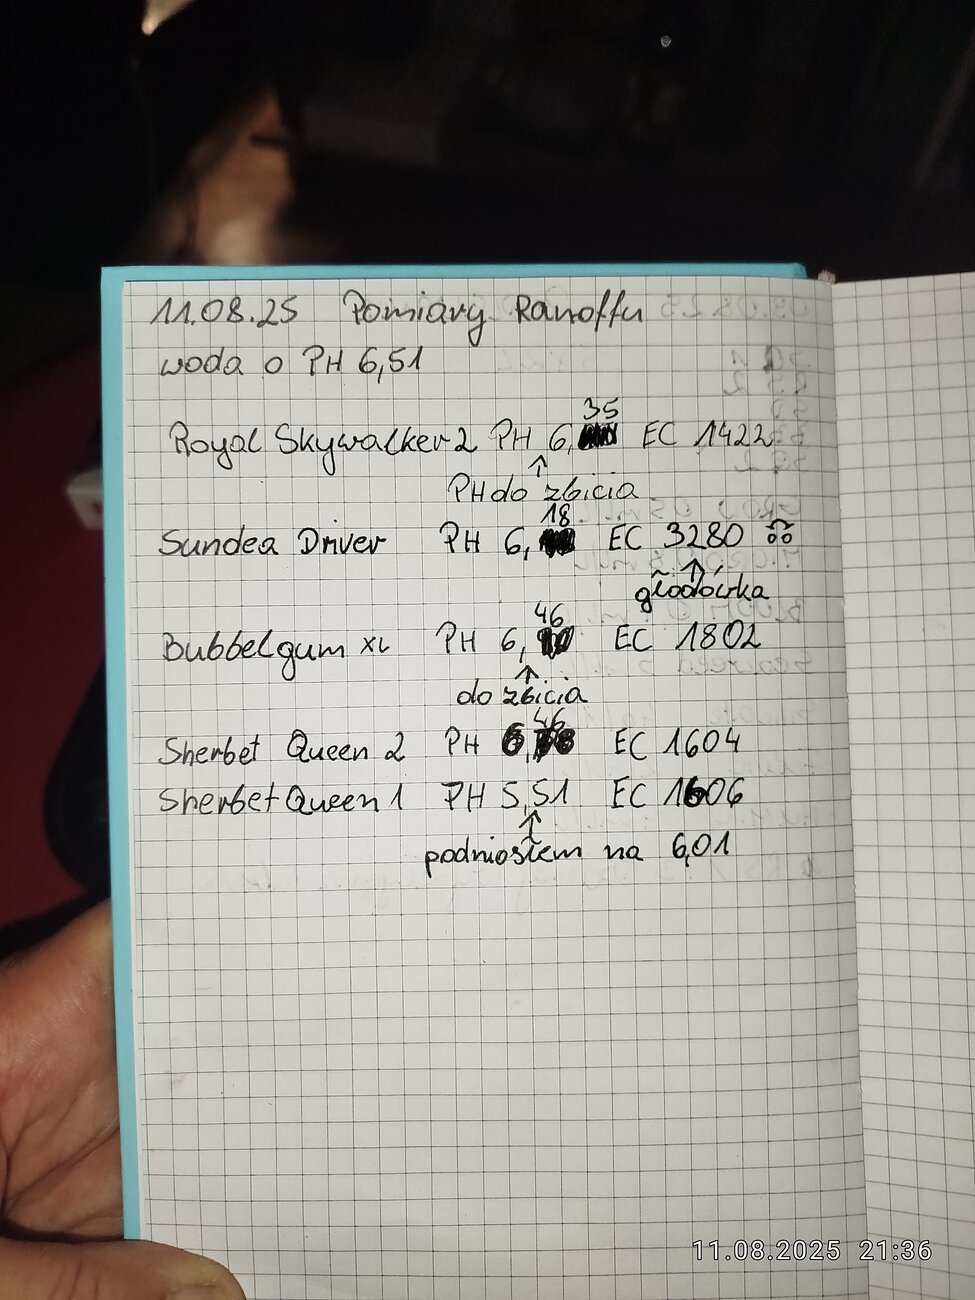 11.08.25 Pomiary Ranoffu
woda o PH 6,51
35
Royal Skywalker 2 PH 6, EC 1422
↑
PH do zbicia
18
Sundea Driver PH 6, EC 3280
↑
głodówka
46
Bubbelgum XL PH 6, EC 1802
↑
do zbicia
46
Sherbet Queen 2 PH 6, EC 1604
Sherbet Queen 1 PH 5,51 EC 1606
↑
podniosłem na 6,01
11.08.2025 21:36